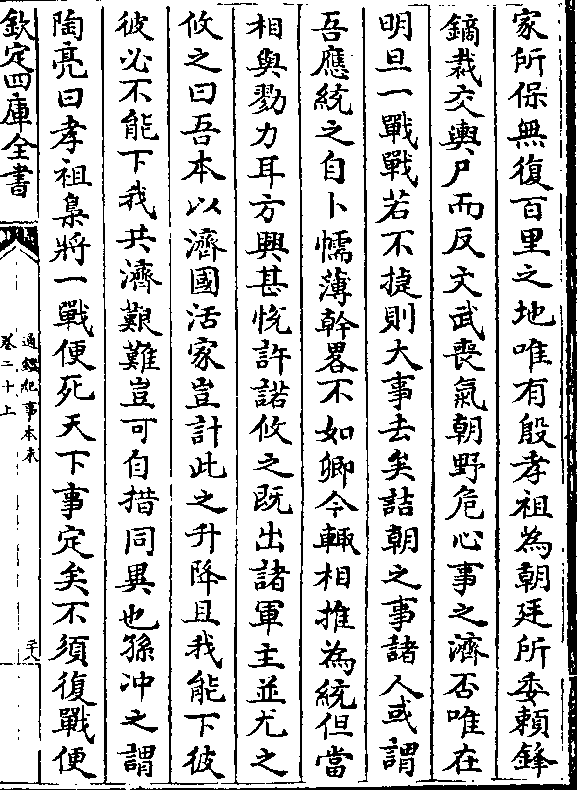 家所保無復百里之地唯有殷孝祖為朝廷所委賴鋒
鏑裁交輿尸而反文武喪氣朝野危心事之濟否唯在
明旦一戰戰若不捷則大事去矣詰朝之事諸人或謂
吾應統之自卜懦薄幹畧不如卿今輒相推為統但當
相與勠力耳方興甚恱許諾攸之既出諸軍主並尤之
攸之曰吾本以濟國活家豈計此之升降且我能下彼
彼必不能下我共濟艱難豈可自措同異也孫冲之謂
陶亮曰孝祖梟將一戰便死天下事定矣不須復戰便
欽定四庫全書
通鑑紀事本末
卷二十上
二十八